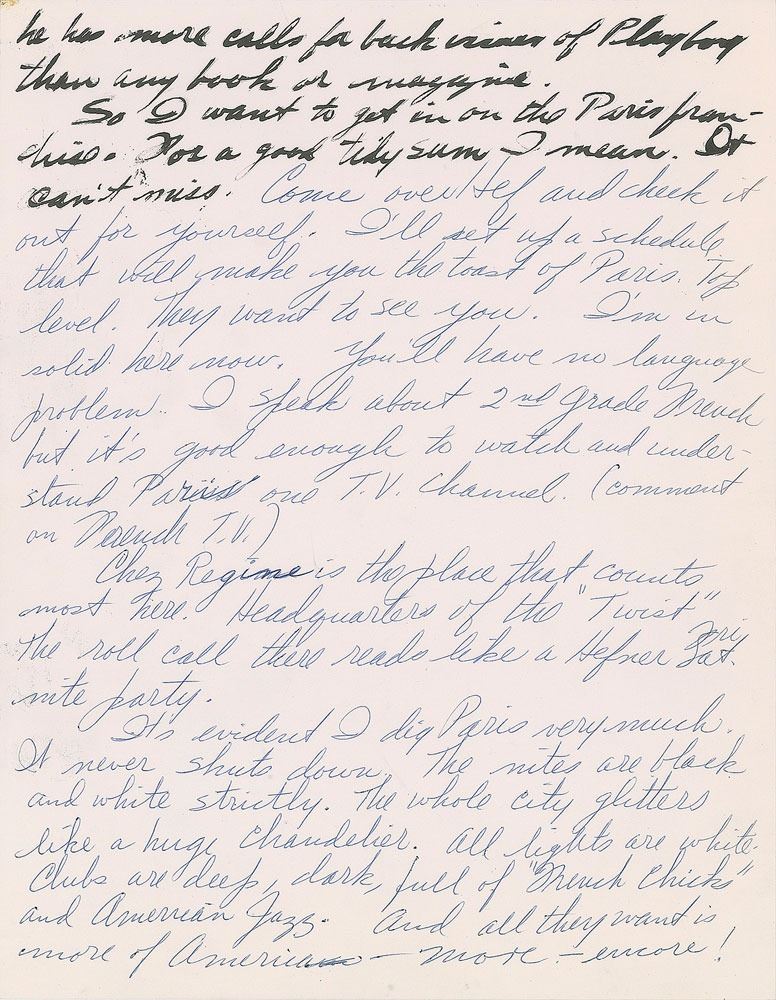 he has more calls for back issues of Playboy
than any book or magazine.
So I want to get in on the Paris fran-
chise. For a good tidy sum I mean. It
can't miss. Come over Hef and check it
out for yourself. I'll set up a schedule
that will make you the toast of Paris. Top
level. They want to see you. I'm in
solid here now. You'll have no language
problem. I speak about 2nd grade French
but it's good enough to watch and under-
stand Paris' one T.V. channel. (comment
on French T.V.)
Chez Regine is the place that counts
most here. Headquarters of the "Twist"
The roll call there reads like a Hefner Fri Sat.
nite party.
It's evident I dig Paris very much.
It never shuts down. The nites are black
and white strictly. The whole city glitters
like a huge chandelier. All lights are white.
Clubs are deep, dark, full of "French Chicks"
and American Jazz. And all they want is
more of America - more - encore!